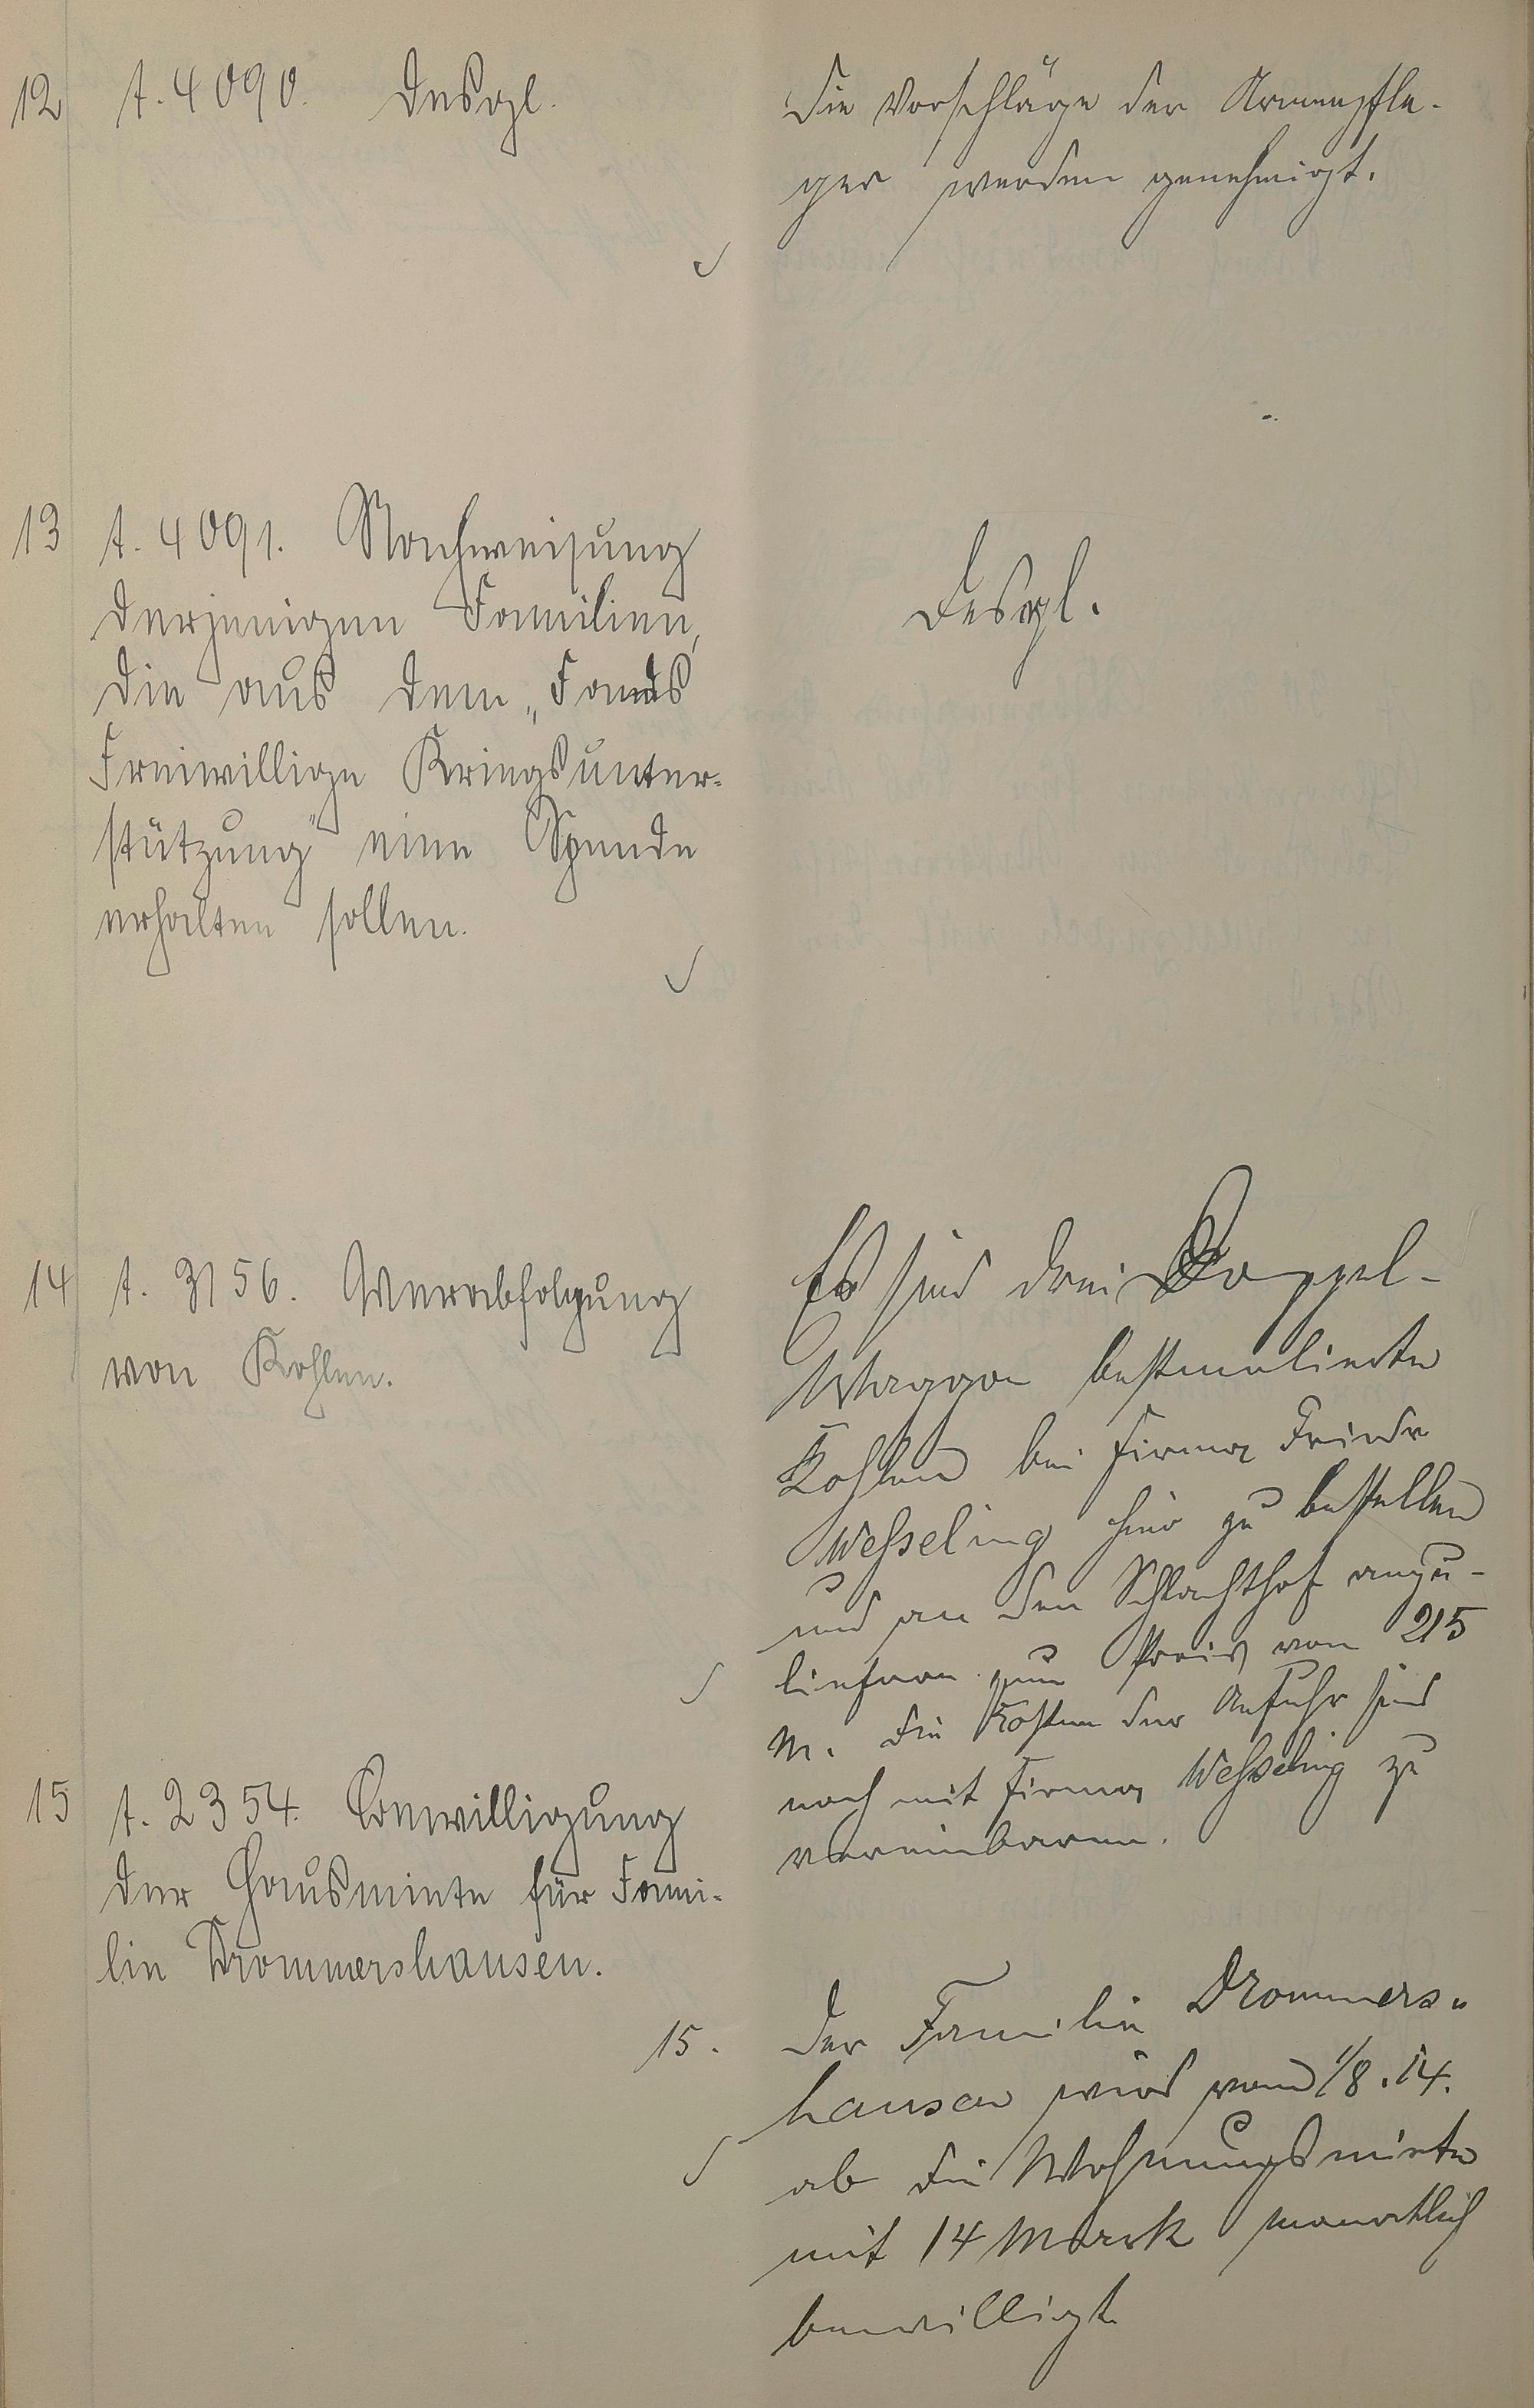 12 A. 4090. Desgl.
Die Vorschläge der Armenpfle-
ger werden genehmigt.
13 A. 4091. Nachweisung
derjenigen Familien,
die aus dem „Fonds
Freiwillige Kriegsunter-
stützung" eine Spende
erhalten sollen.
Desgl.
14 A. 3156. Verabfolgung
von Kohlen.
Es sind drei Doppel-
Waggon bestmelierte
Kohlen bei Firma Friedr
Weßeling hier zu bestellen
und an den Schlachthof anzu-
liefern zum Preis von 215
M. Die Kosten der Anfuhr sind
noch mit Firma Weßeling zu
vereinbaren.
15 A. 2354. Bewilligung
der Hausmiete für Fami-
lie Drommershausen.
15. Der Familie Drommers-
hausen wird vom 1/8. 14.
ab die Wohnungsmiete
mit 14 Mark monatlich
bewilligt